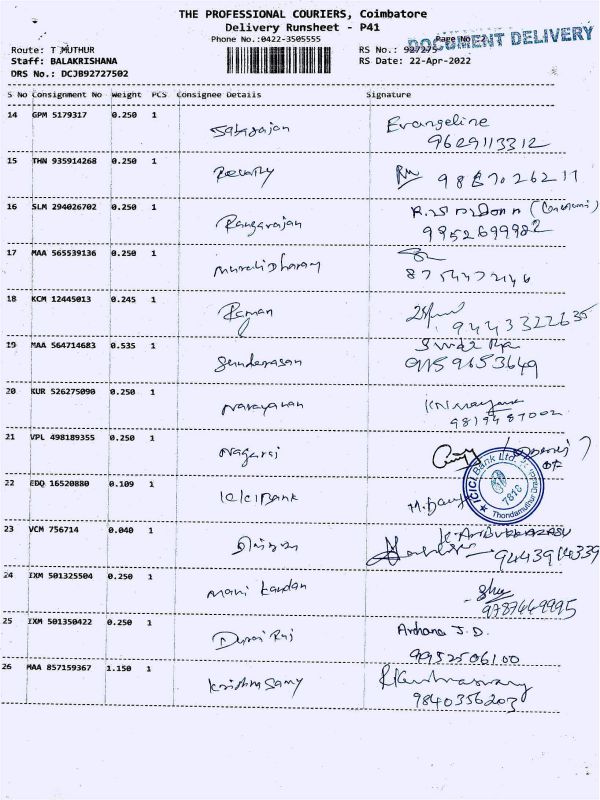 THE PROFESSIONAL COURIERS, Coimbatore
Delivery Runsheet - P41
Phone No.:0422-3505555
DOCUMENT DELIVERY
Route: T MUTHUR
RS No.: 927275
Staff: BALAKRISHANA
RS Date: 22-Apr-2022
DRS No.: DCJB92727502
S No Consignment No Weight PCS Consignee Details Signature
14 GPM 5179317 0.250 1 Evangeline
9629113312
15 THN 935914268 0.250 1
16 SLM 294026702 0.250 1 Rangarajan
9952699982
17 MAA 565539136 0.250 1 Muralidharan
8754472146
18 KCM 12445013 0.245 1 Raman
9443322635
19 MAA 564714683 0.535 1 Sundarasan
9159653649
20 KUR 526275090 0.250 1 Narayanan
9819487002
21 VPL 498189355 0.250 1 Nagaraj
22 EDQ 16520880 0.109 1 ICICI Bank
ICICI Bank Ltd.
7818
23 VCM 756714 0.040 1 K. ARIVUKKARASU
9443914339
24 IXM 501325504 0.250 1 Mani kandan
9787669995
25 IXM 501350422 0.250 1 Durai Raj Archana J.D.
9952506100
26 MAA 857159367 1.150 1 Krishnasamy
9840356203